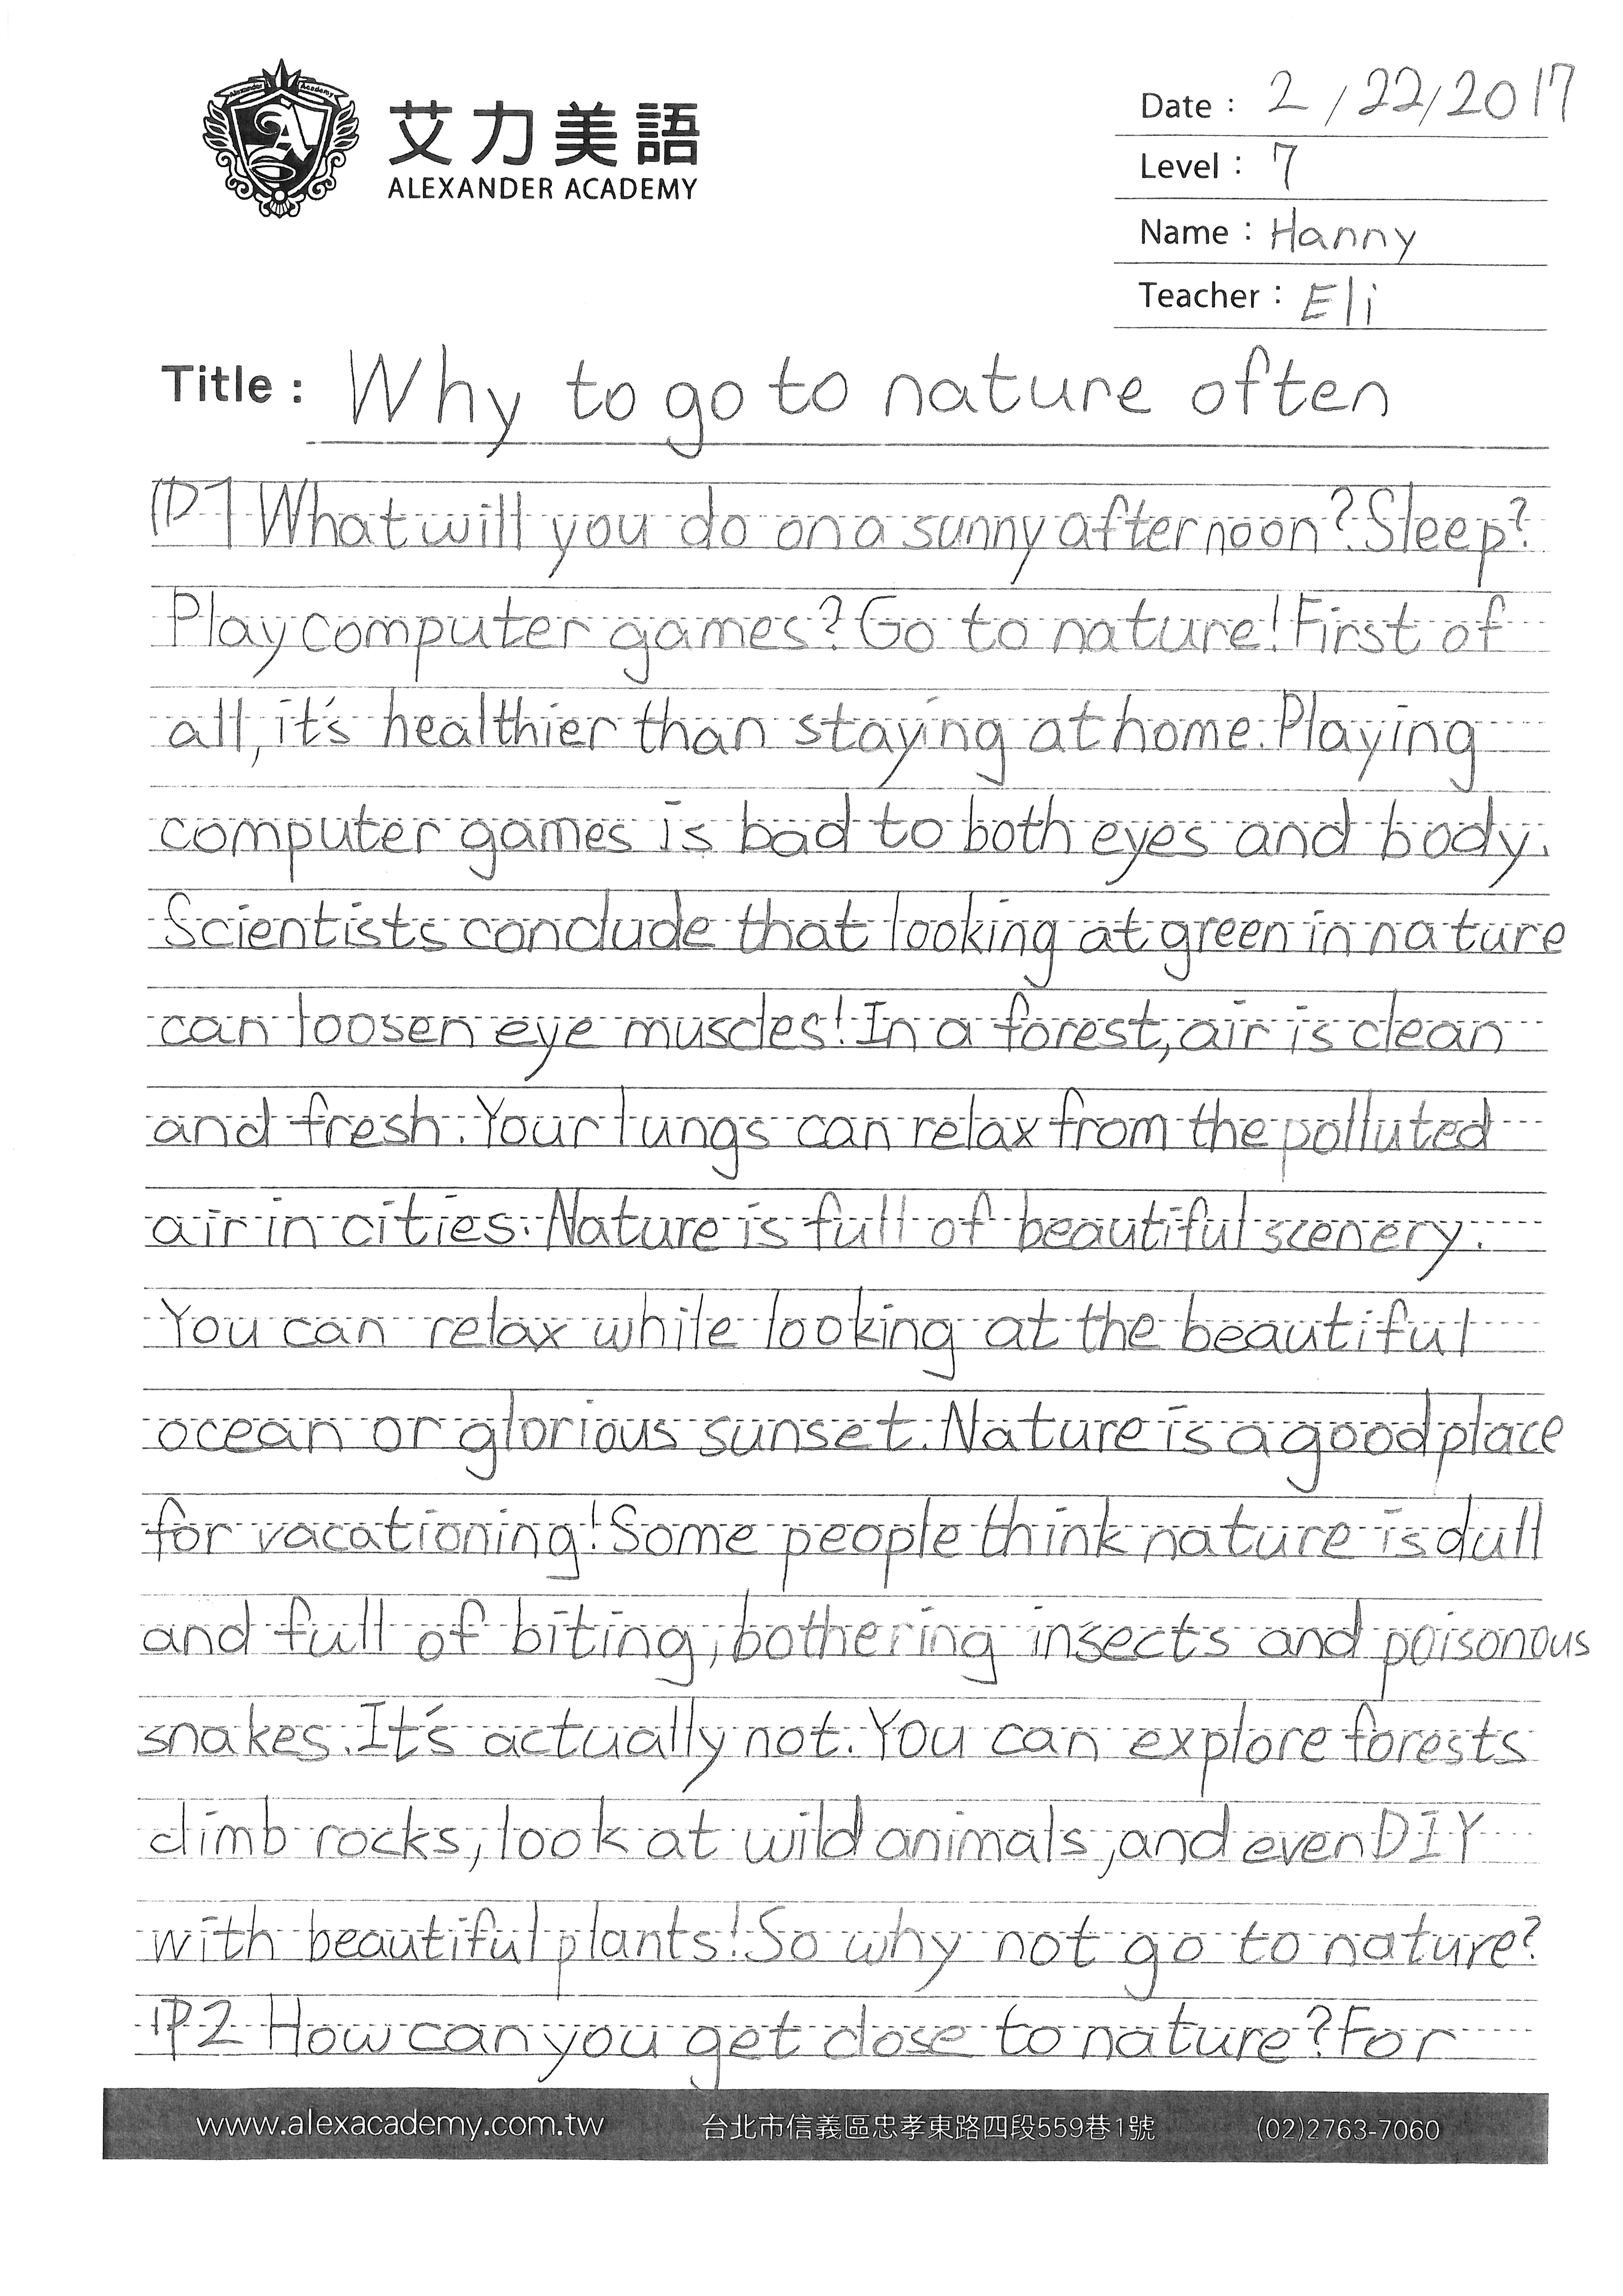 艾力美語
ALEXANDER ACADEMY
Date : 2/22/2017
Level : 7
Name : Hanny
Teacher : Eli
Title : Why to go to nature often
P1 What will you do on a sunny afternoon? Sleep?
Play computer games? Go to nature! First of
all, it's healthier than staying at home. Playing
computer games is bad to both eyes and body.
Scientists conclude that looking at green in nature
can loosen eye muscles! In a forest, air is clean
and fresh. Your lungs can relax from the polluted
air in cities. Nature is full of beautiful scenery.
You can relax while looking at the beautiful
ocean or glorious sunset. Nature is a good place
for vacationing! Some people think nature is dull
and full of biting, bothering insects and poisonous
snakes. It's actually not. You can explore forests
climb rocks, look at wild animals, and even DIY
with beautiful plants! So why not go to nature?
P2 How can you get close to nature? For
www.alexacademy.com.tw 台北市信義區忠孝東路四段559巷1號 (02)2763-7060